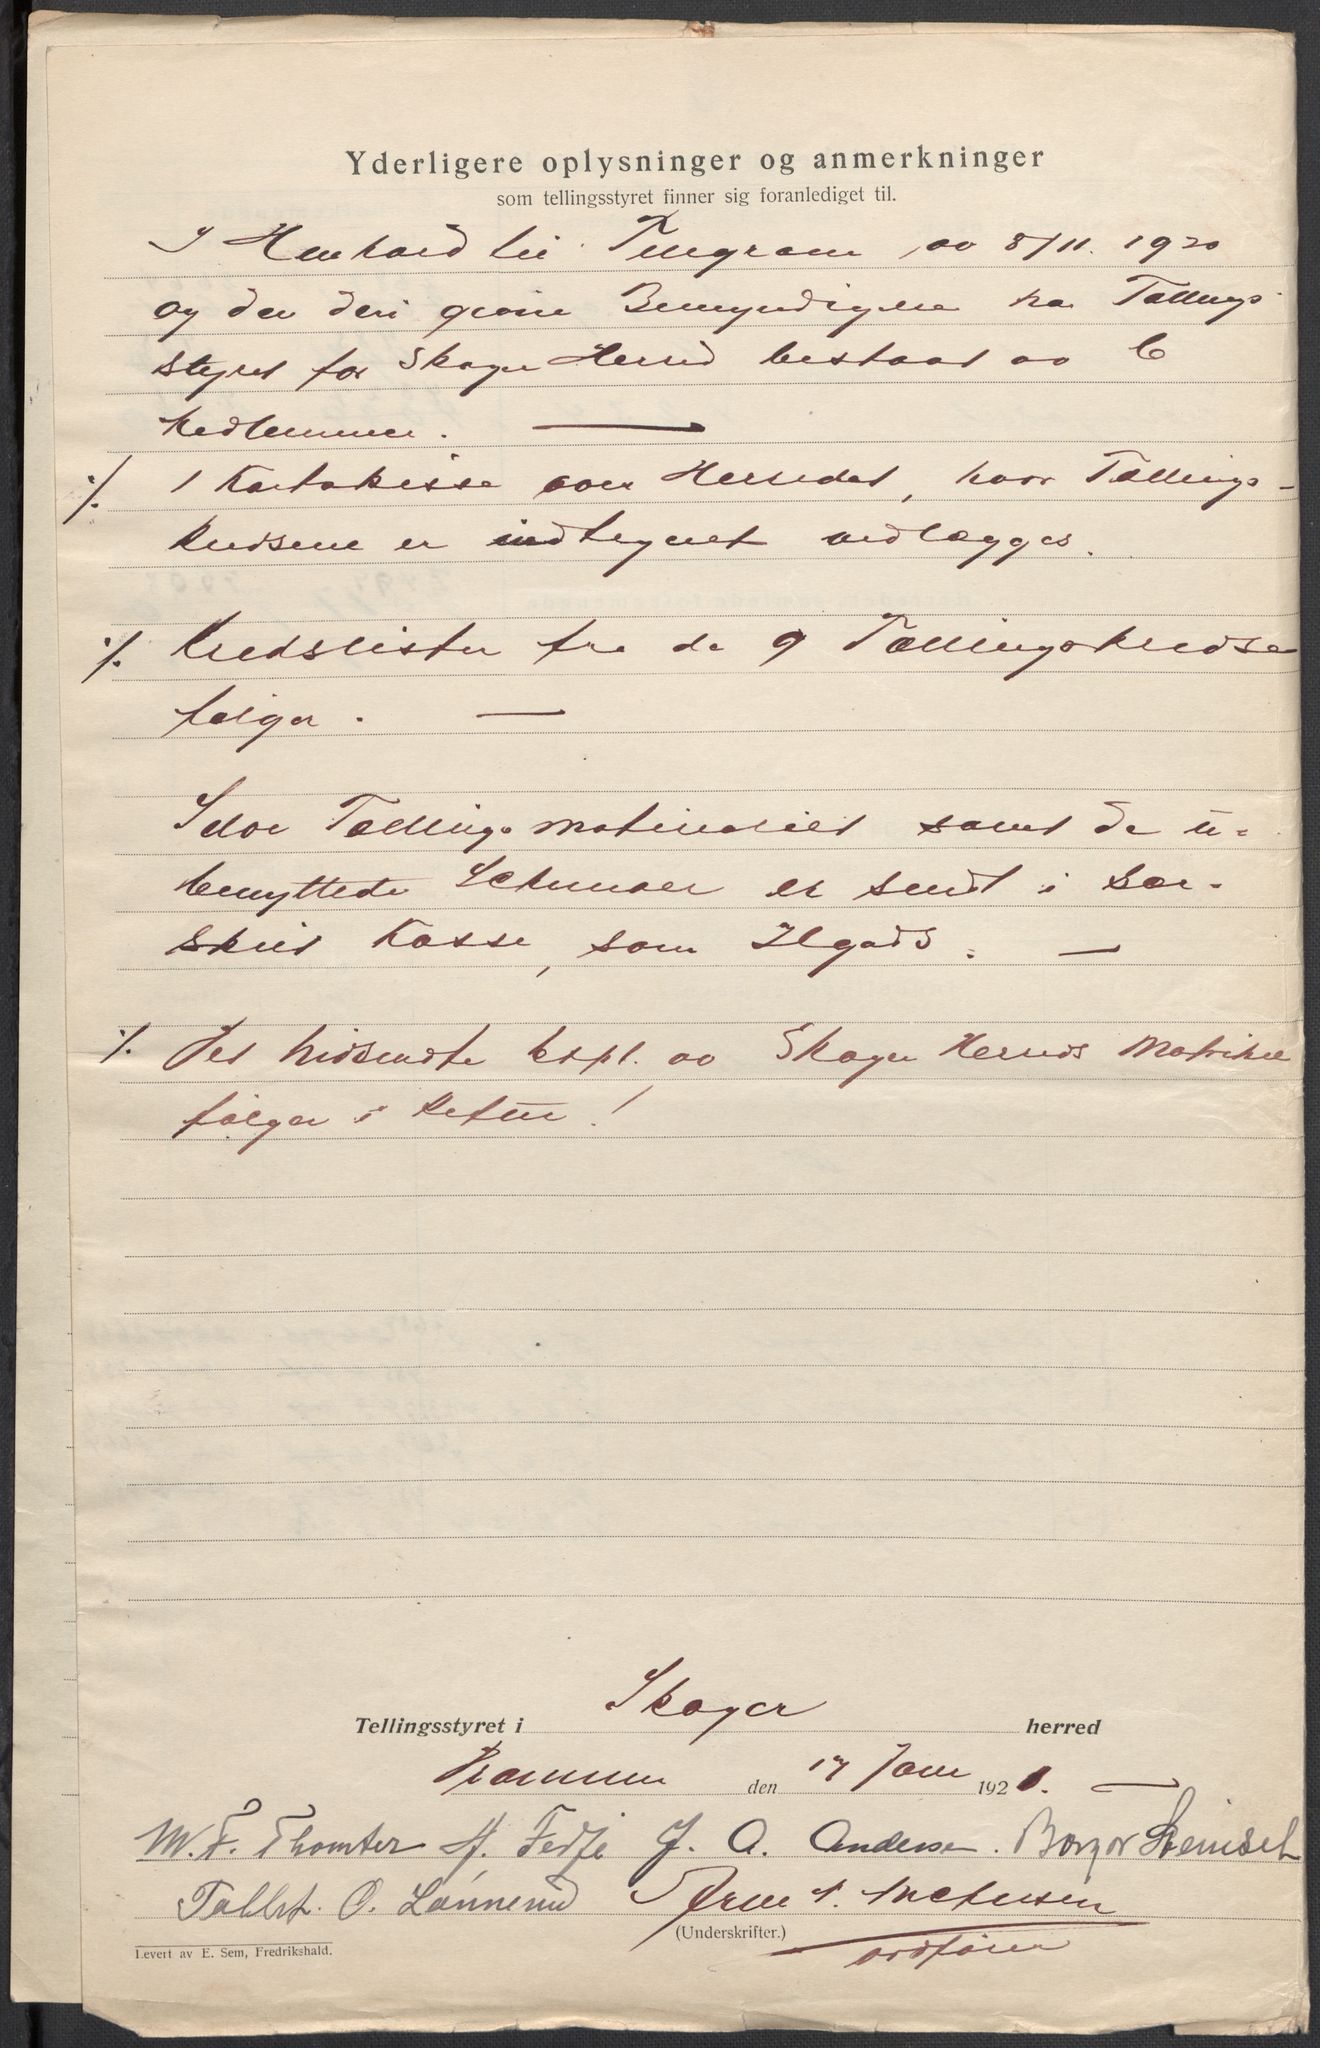 Yderligere oplysninger og anmerkninger
som tellingsstyret finner sig foranlediget til.
I Henhold til Telegram av 8/11. 1920
og den deri givne Bemyndigelse har Tællings
styret for Skoger Herred bestaat av 6
Medlemmer. —
·/. 1 Kartskisse over Herredet, hvor Tællings-
kredsene er indtegnet vedlægges.
·/. Kredslister fra de 9 Tællingskredse
følger. —
Selve Tællingsmaterialet samt de u-
benyttede Schemaer er sendt i sær-
skilt Kasse, som Ilgods. —
·/. Det hidsendte Expl. av Skoger Herreds Matrikel
følger i Retur!
Tellingsstyret i Skoger herred
Drammen den 17 Janr 1921. —
M. F. Thomter H. Fedje J. A. Andersen. Borgar Steinset
O. Lonnerud
(Underskrifter.)
ordfører
Levert av E. Sem, Fredrikshald.